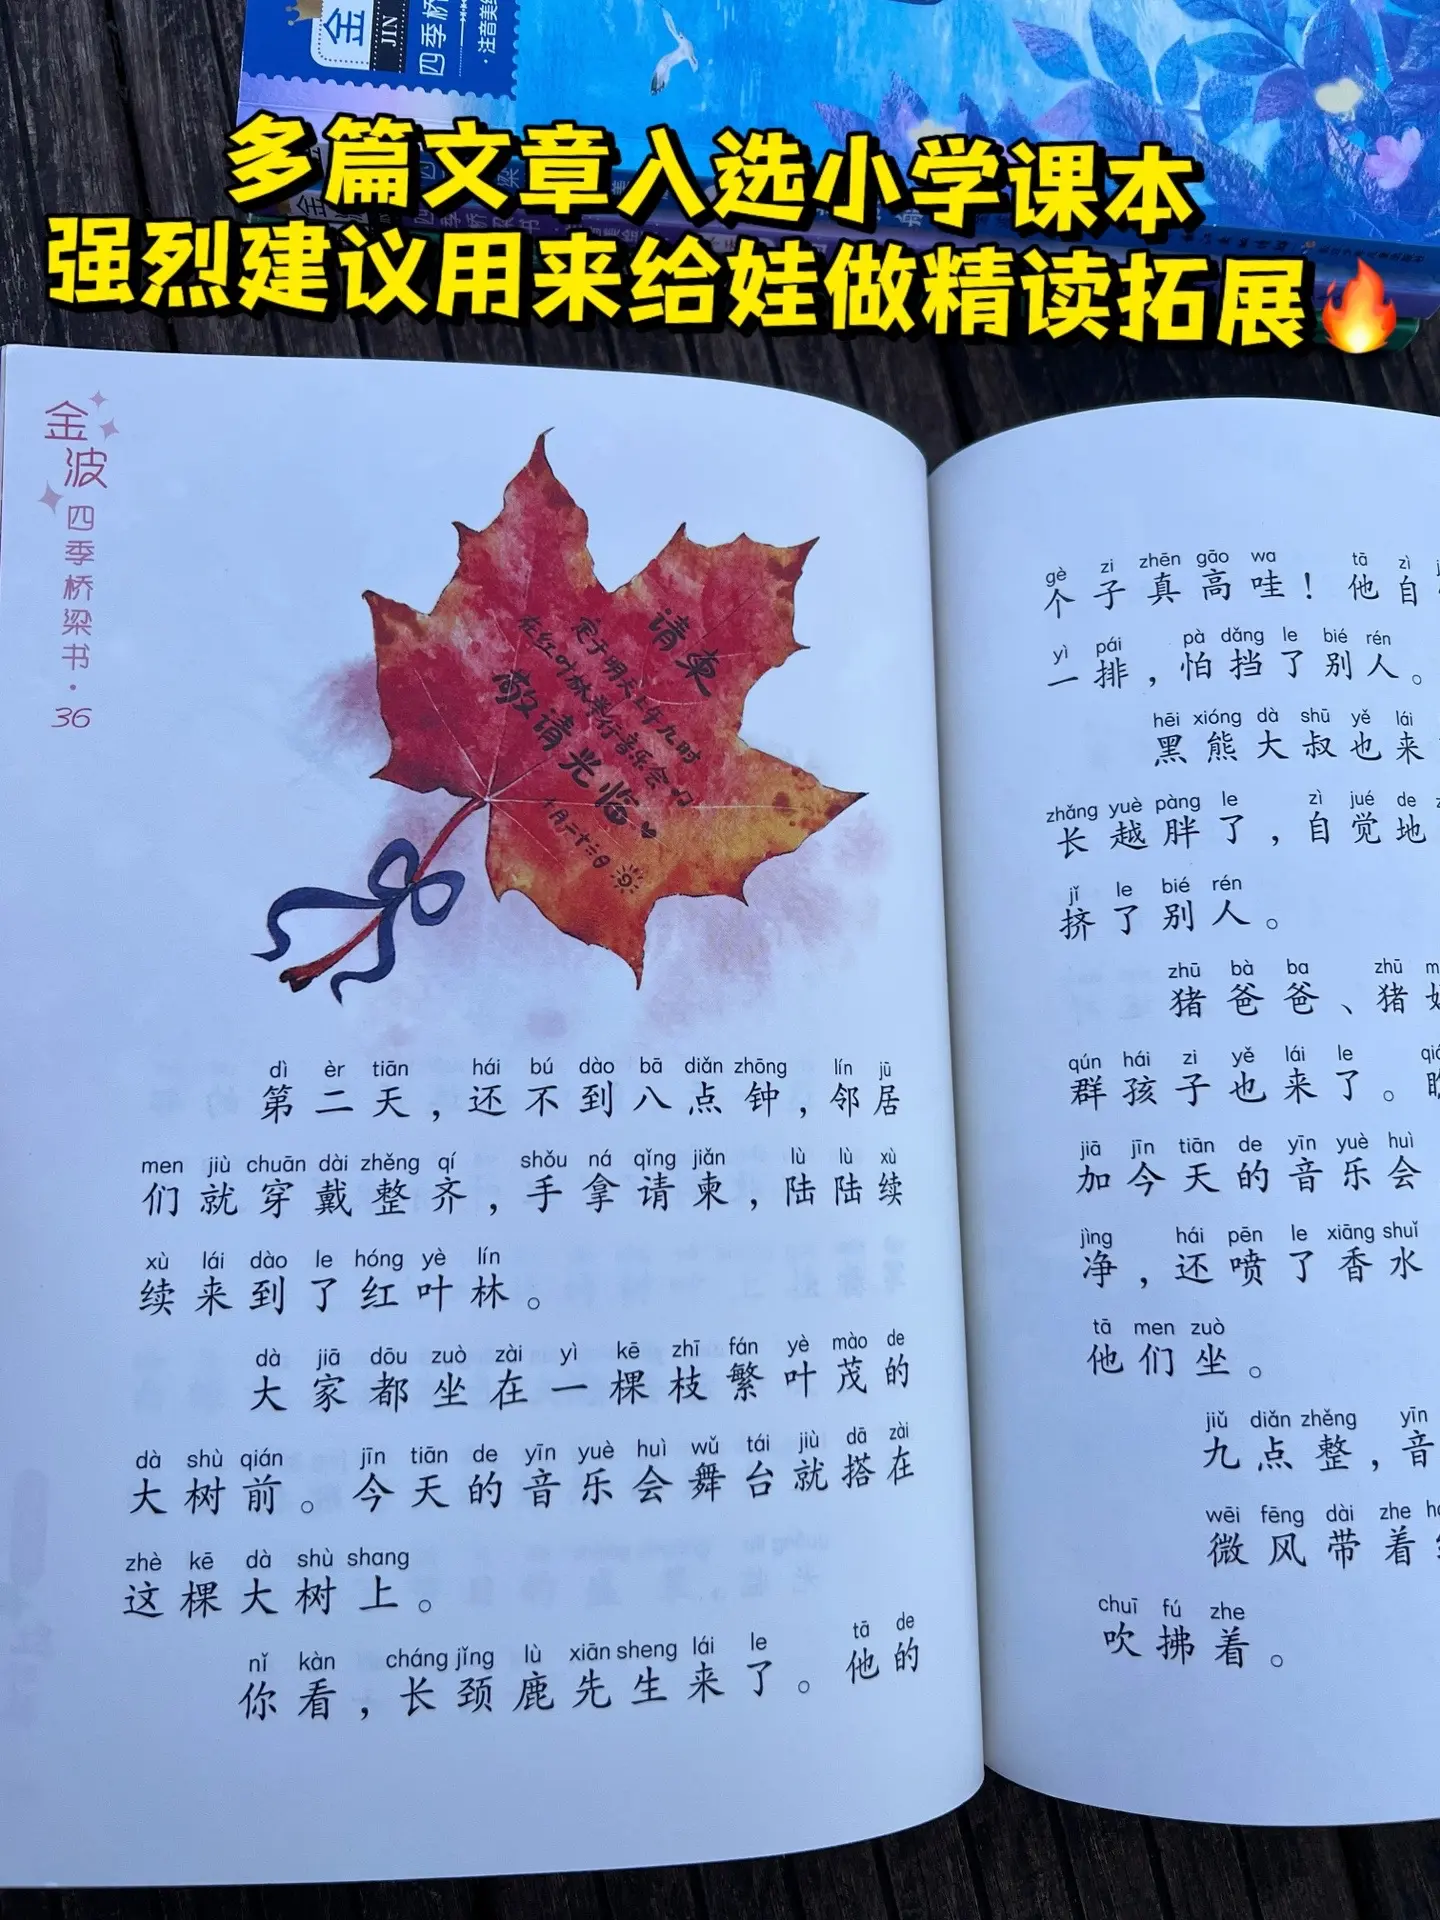 金
JIN
四季桥
注音美绘
多篇文章入选小学课本
强烈建议用来给娃做精读拓展🔥
金波
四季桥梁书·36
请柬
定于明天上午九时
在红叶林举行音乐会
敬请光临
十月二十六日
dì èr tiān hái bú dào bā diǎn zhōng lín jū
第二天，还不到八点钟，邻居
men jiù chuān dài zhěng qí shǒu ná qǐng jiǎn lù lù xù
们就穿戴整齐，手拿请柬，陆陆续
xù lái dào le hóng yè lín
续来到了红叶林。
dà jiā dōu zuò zài yì kē zhī fán yè mào de
大家都坐在一棵枝繁叶茂的
dà shù qián jīn tiān de yīn yuè huì wǔ tái jiù dā zài
大树前。今天的音乐会舞台就搭在
zhè kē dà shù shang
这棵大树上。
nǐ kàn cháng jǐng lù xiān sheng lái le tā de
你看，长颈鹿先生来了。他的
gè zi zhēn gāo wa tā zì
个子真高哇！他自
yì pái pà dǎng le bié rén
一排，怕挡了别人。
hēi xióng dà shū yě lái
黑熊大叔也来
zhǎng yuè pàng le zì jué de
长越胖了，自觉地
jǐ le bié rén
挤了别人。
zhū bà ba zhū
猪爸爸、猪
qún hái zi yě lái le
群孩子也来了。
jiā jīn tiān de yīn yuè huì
加今天的音乐会
jìng hái pēn le xiāng shuǐ
净，还喷了香水
tā men zuò
他们坐。
jiǔ diǎn zhěng yīn
九点整，音
wēi fēng dài zhe
微风带着
chuī fú zhe
吹拂着。